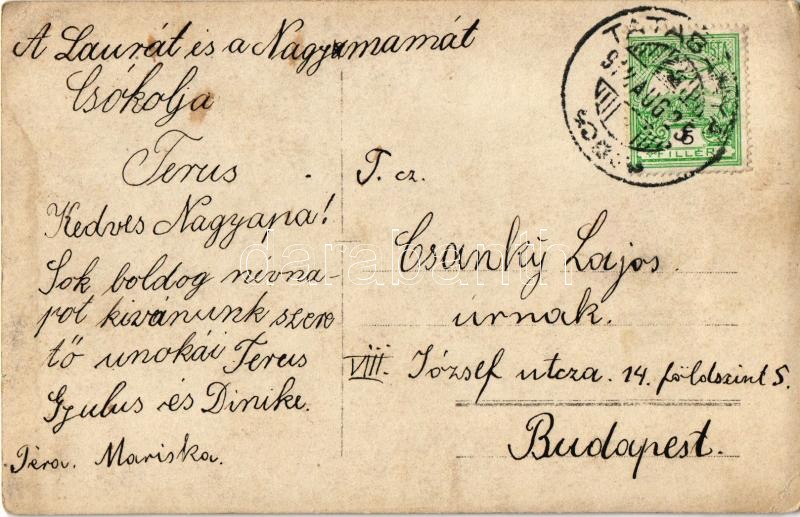 A Laurát és a Nagymamát
Csókolja
Terus
Kedves Nagyapa!
Sok boldog névna-
pot kivánunk szere
tő unokái Terus
Gyulus és Dinike.
Mariska.
T. cz.
Csanky Lajos
úrnak.
VIII. József utcza. 14. földszint 5.
Budapest.
TATABÁNYA
AUG 26
6
FILLÉR
darabanth